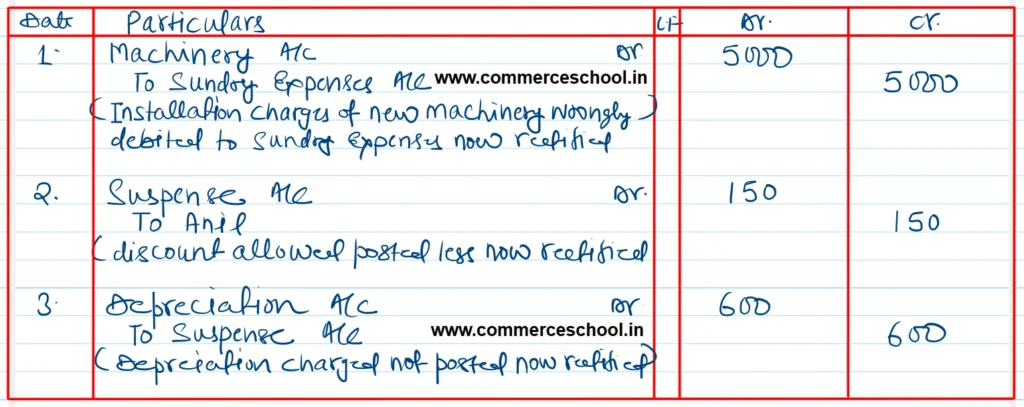 Date Particulars LF Dr. Cr.
1. Machinery A/c Dr 5000
To Sundry Expenses A/c www.commerceschool.in 5000
(Installation charges of new machinery wrongly)
debited to sundry expenses now rectified
2. Suspense A/c Dr. 150
To Anil 150
(discount allowed posted less now rectified
3. Depreciation A/c Dr 600
To Suspense A/c www.commerceschool.in 600
(Depreciation charged not posted now rectified)